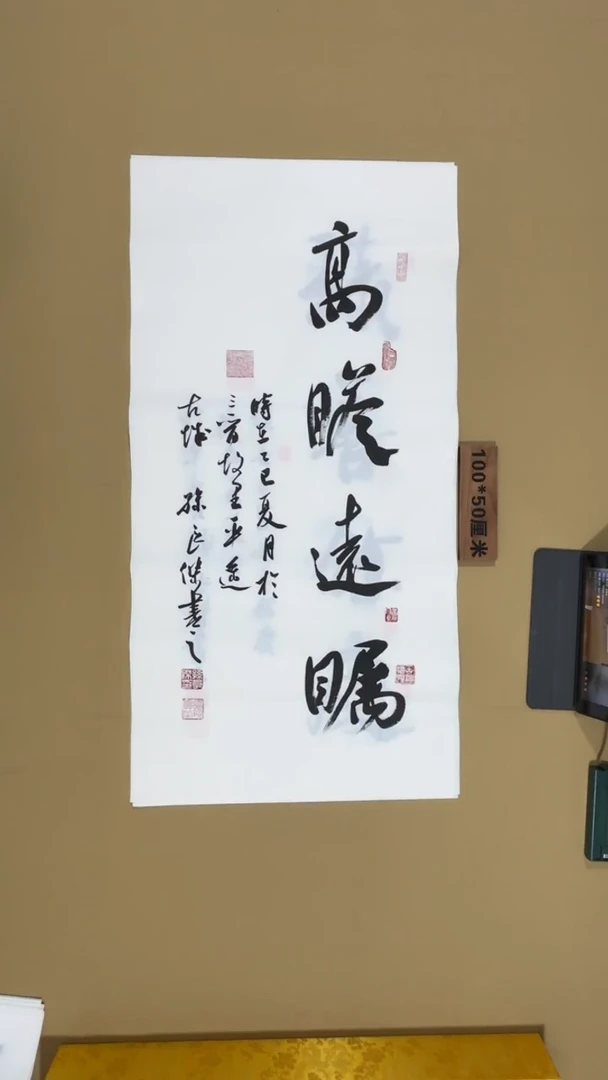 高瞻遠瞩
時在乙巳夏月於
三晋故里平遥
古城 孫良傑書之
100*50厘米